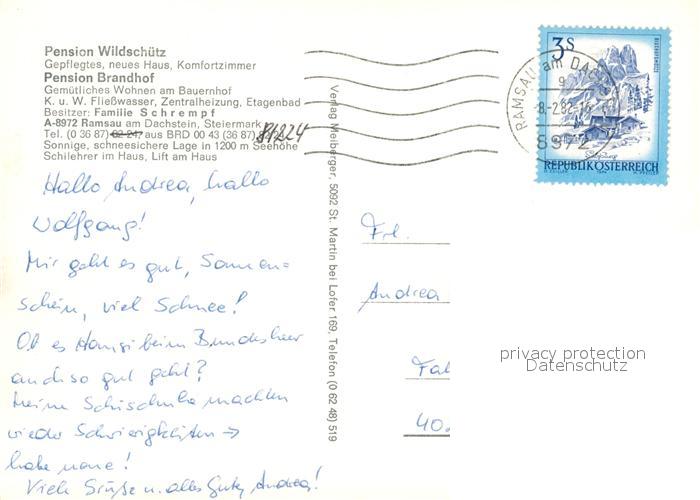 Pension Wildschütz
Gepflegtes, neues Haus, Komfortzimmer
Pension Brandhof
Gemütliches Wohnen am Bauernhof
K. u. W. Fließwasser, Zentralheizung, Etagenbad
Besitzer: Familie Schrempf
A-8972 Ramsau am Dachstein, Steiermark
Tel. (0 36 87) 62 247 aus BRD 00 43 (36 87) 81224
Sonnige, schneesichere Lage in 1200 m Seehöhe
Schilehrer im Haus, Lift am Haus
Hallo Andrea, hallo
Wolfgang!
Mir geht es gut, Sonnen=
schein, viel Schnee!
Ob es Hansi beim Bundesheer
auch so gut geht?
Meine Schischuhe machten
wieder Schwierigkeiten →
habe neue!
Viele Grüße u. alles Gute, Andrea!
Verlag Maiberger, 5092 St. Martin bei Lofer 169, Telefon (0 62 48) 519
3S
RAMSAU am DACH
9
-8-2.82-16
8972
REPUBLIK ÖSTERREICH
Frl.
Andrea
Fal
40.
privacy protection
Datenschutz